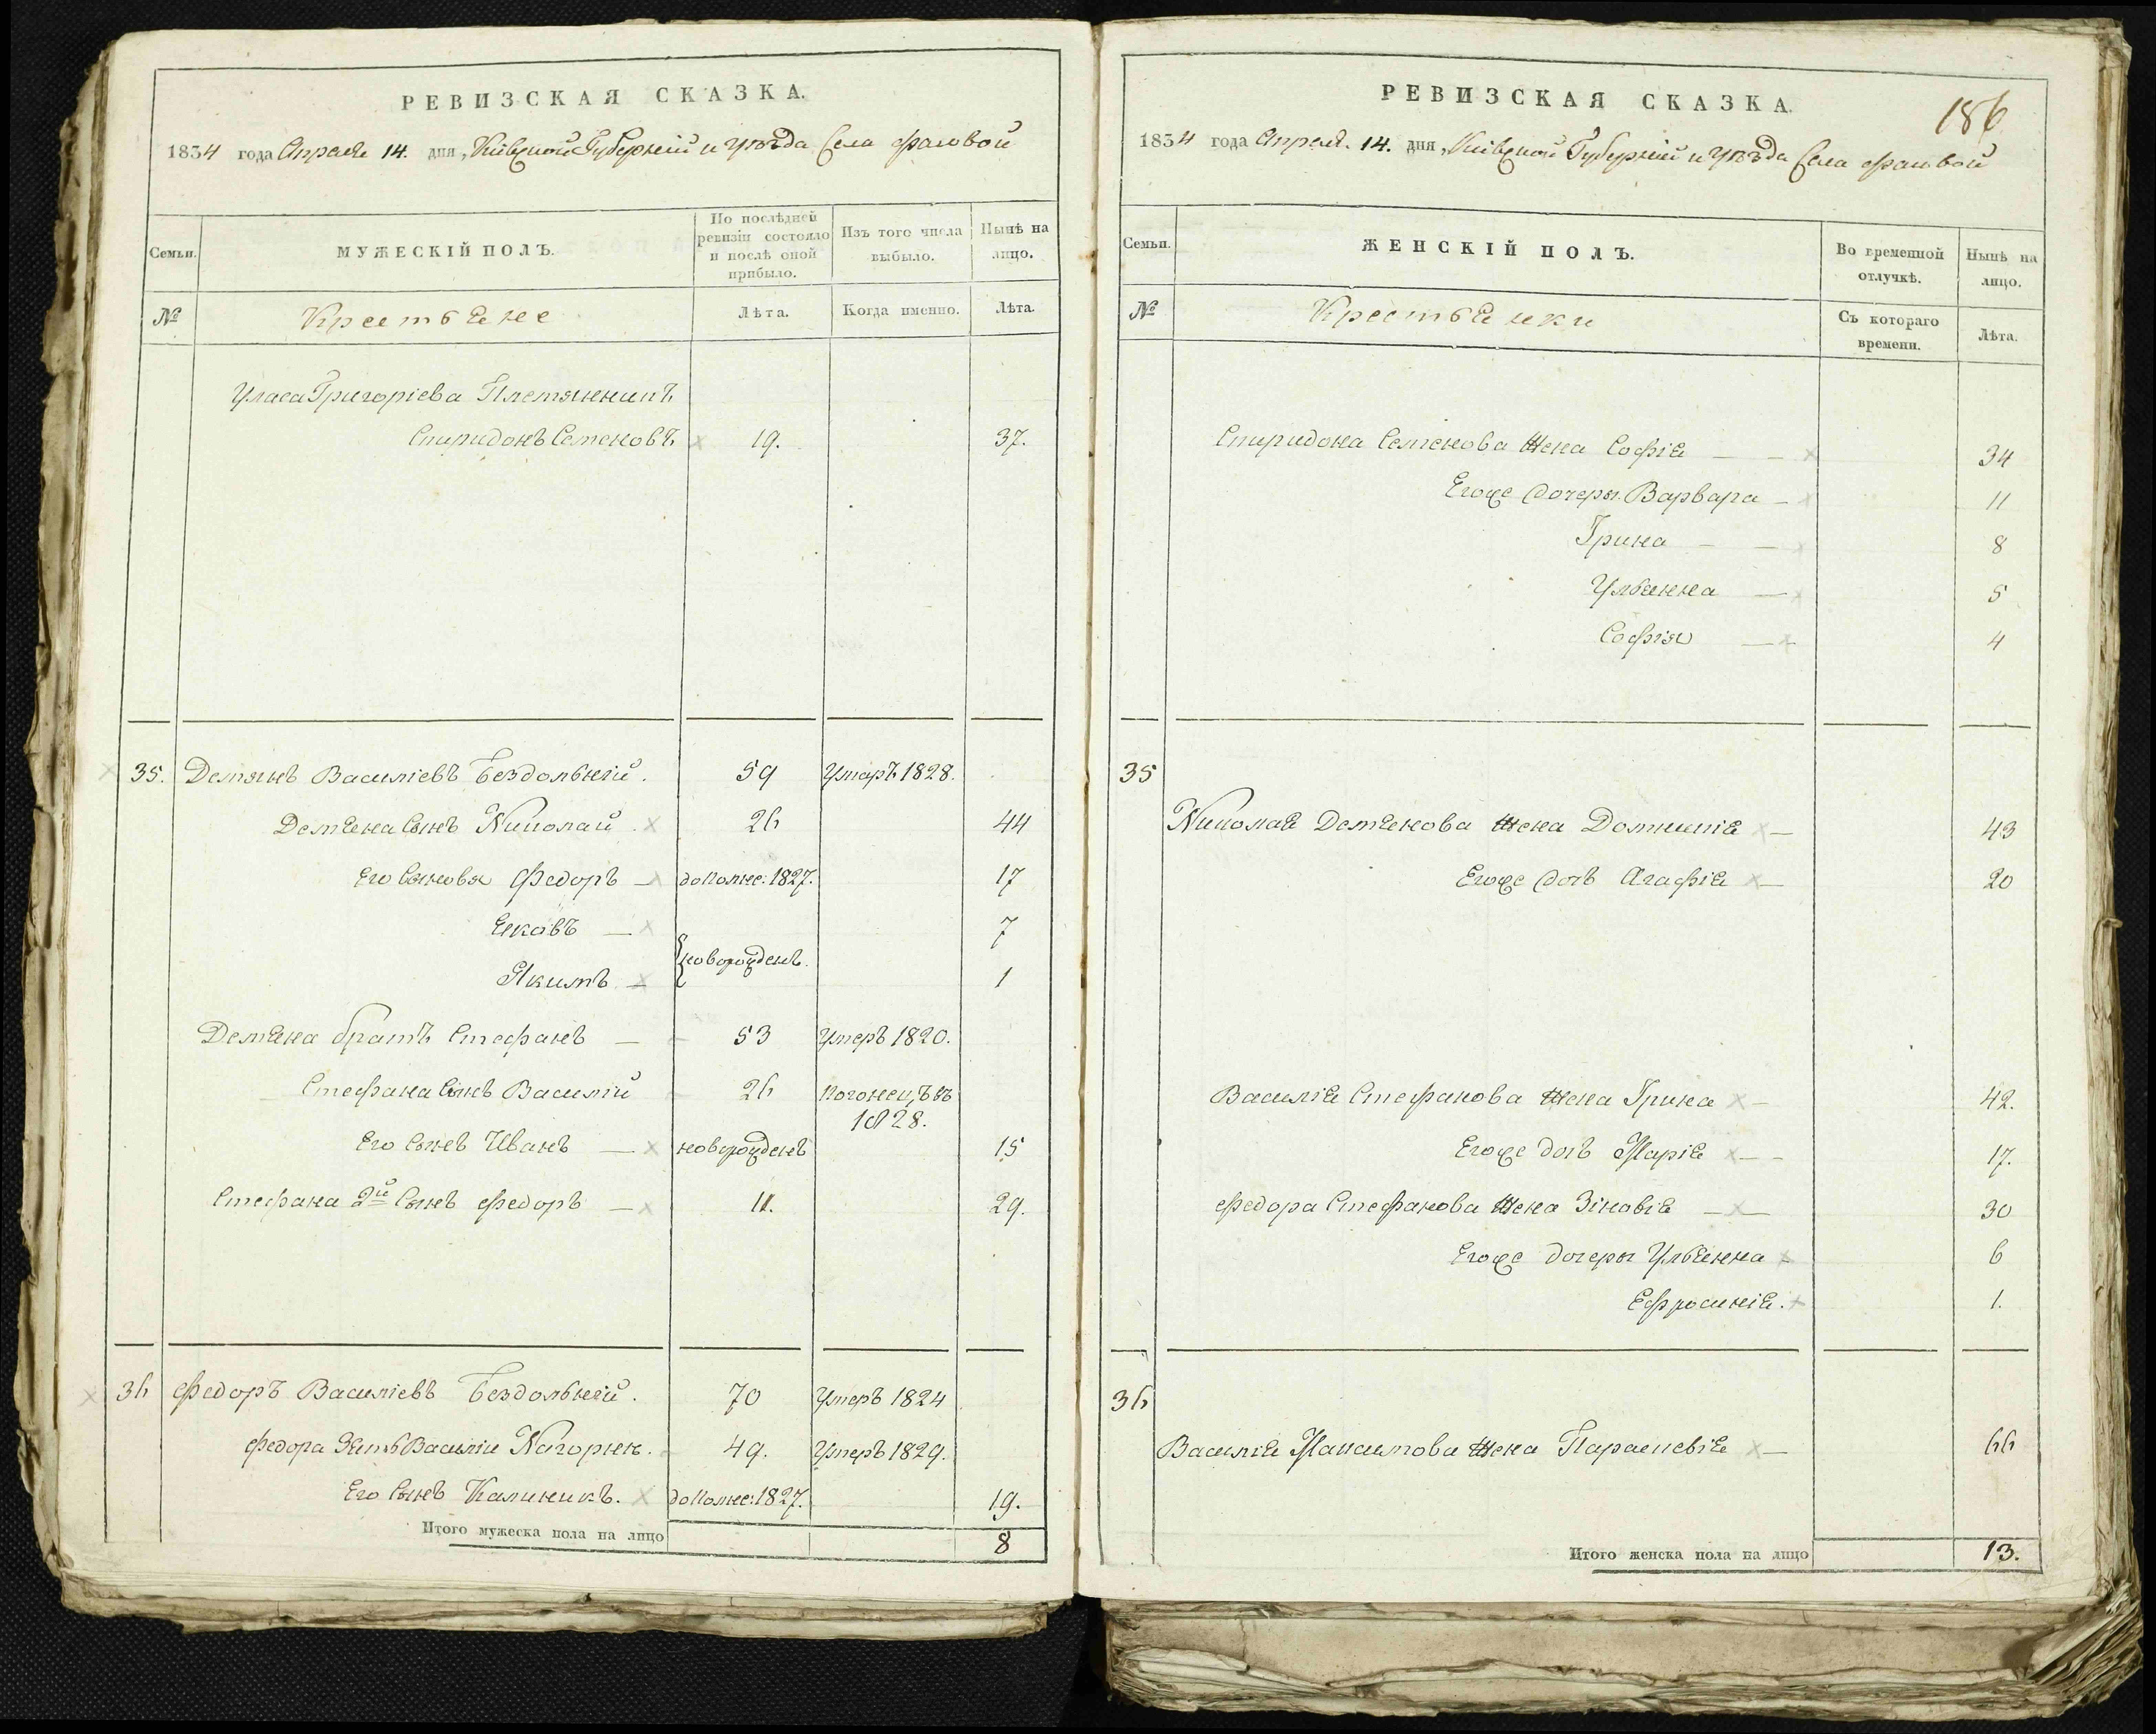 РЕВИЗСКАЯ СКАЗКА.
1834 года Апреля 14. дня, Кіевской Губерніи и уѣзда Села Фастовой
Семьи.
МУЖЕСКІЙ ПОЛЪ.
По послѣдней ревизіи состояло и послѣ оной прибыло.
Изъ того числа выбыло.
Нынѣ на лицо.
№
Крестьяне
Лѣта.
Когда именно.
Лѣта.
Уласа Григоріева Племянникъ
Спиридонъ Семеновъ 19. 37.
35. Демянъ Василіевъ Бездольній. 59 Умаръ 1828.
Демяна Сынъ Николай 26 44
Его Сыновья Федоръ — дополне: 1827. 17
Яковъ — 7
новорожденъ.
Якимъ — 1
Демяна братъ Стефанъ — 53 Умеръ 1820.
Стефана Сынъ Василій 26
1828.
Его Сынъ Иванъ — новорожденъ 15
Стефана 2й Сынъ Федоръ — 11. 29.
36 Федоръ Василіевъ Бездольній. 70 Умеръ 1824
Федора Зять Василій 49. Умеръ 1829.
Его Сынъ Калиникъ. дополне: 1827. 19.
Итого мужеска пола на лицо 8
РЕВИЗСКАЯ СКАЗКА.
186
1834 года Апреля. 14. дня, Кіевской Губерніи и уѣзда Села Фастовой
Семьи.
ЖЕНСКІЙ ПОЛЪ.
Во временной отлучкѣ.
Нынѣ на лицо.
№
Крестьянки
Съ котораго времени.
Лѣта.
Спиридона Семенова Жена Софія — — 34
Егоже дочеры Варвара — 11
Ирина — — 8
Ульянна — 5
Софія — 4
35
Николая Демянова Жена Домникія — 43
Егоже дочь Агафія — 20
Василія Стефанова Жена Ирина — 42.
Егоже дочь Марія — — 17.
Федора Стефанова Жена Зіновія — — 30
Егоже дочеры Ульянна — 6
Ефросинія. 1.
36
Василія Максимова Жена Параскевія — 66
Итого женска пола на лицо 13.